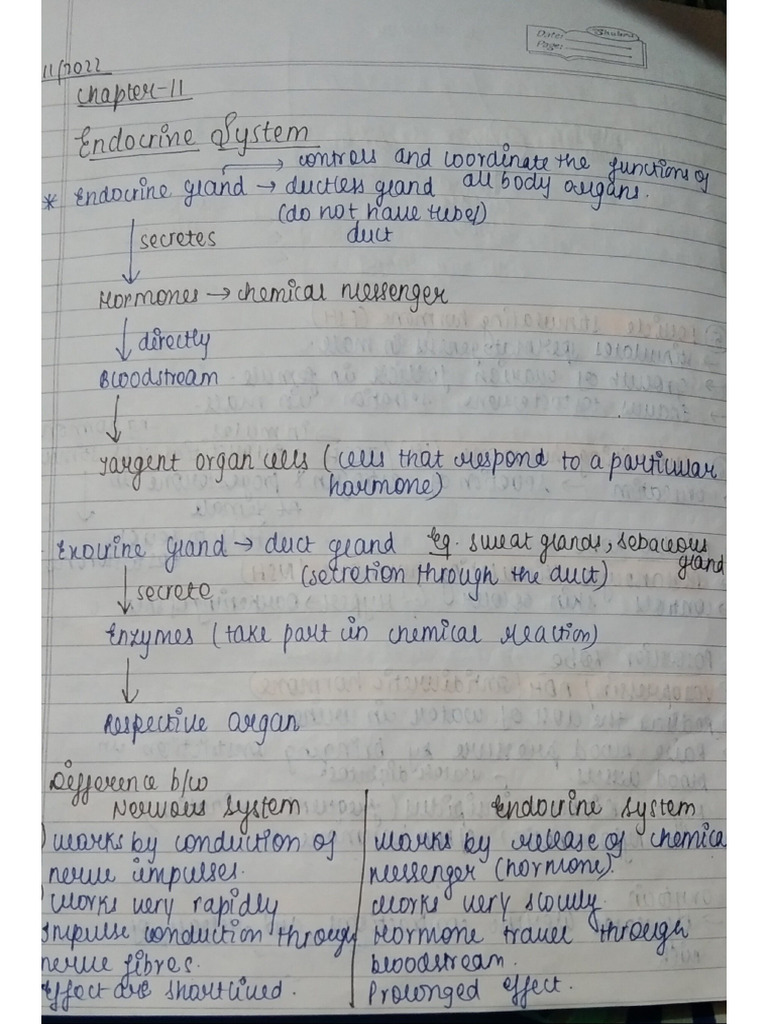 Date:
Page:
11/2022
Chapter-11
Endocrine System
→ controls and coordinate the functions of
* Endocrine gland → ductless gland all body organs.
(do not have tubes)
secretes duct
Hormones → chemical messenger
↓ directly
Bloodstream
↓
Targent organ cells (cells that respond to a particular
hormone)
Exocrine gland → duct gland Eg. sweat glands, sebaceous
gland
↓ secrete (secretion through the duct)
Enzymes (take part in chemical reaction)
↓
Respective organ
Difference b/w
Nervous system Endocrine system
) works by conduction of works by release of chemica
nerve impulses. messenger (hormone).
) works very rapidly works very slowly.
Impulse conduction through Hormone travel through
nerve fibres. bloodstream.
Effect are shortlived. Prolonged effect.